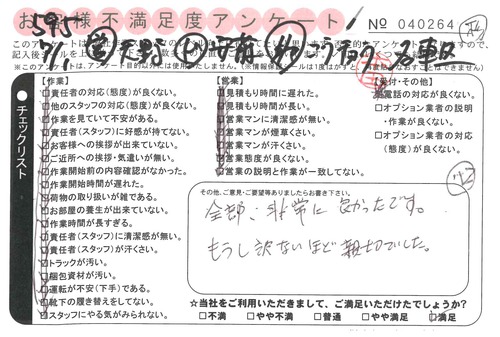 お客様不満足度アンケート
No 040264
595
7/1
【作業】
□責任者の対応(態度)が良くない。
□他のスタッフの対応(態度)が良くない。
□作業を見ていて不安がある。
□責任者(スタッフ)に好感が持てない。
□お客様への挨拶が出来ていない。
□ご近所への挨拶・気遣いが無い。
□作業開始前の内容確認がなかった。
□作業開始時間が遅れた。
□荷物の取り扱いが雑である。
□お部屋の養生が出来ていない。
□作業時間が長すぎる。
□責任者(スタッフ)に清潔感が無い。
□責任者(スタッフ)が汗くさい。
□トラックが汚い。
□梱包資材が汚い。
□運転が不安(下手)である。
□靴下の履き替えをしてない。
□スタッフにやる気がみられない。
【営業】
□見積もり時間に遅れた。
□見積もり時間が長い。
□営業マンに清潔感が無い。
□営業マンが煙草くさい。
□営業マンが汗くさい。
□営業態度が良くない。
□営業の説明と作業が一致してない。
【受付・その他】
□電話の対応が良くない。
□オプション業者の説明
・作業が良くない。
□オプション業者の対応
(態度)が良くない。
チェックリスト
その他、ご意見・ご要望等ありましたらお書き下さい。
全部、非常に良かったです。
もうし訳ないほど親切でした。
☆当社をご利用いただきまして、ご満足いただけたでしょうか?
□不満 □やや不満 □普通 □やや満足 □満足
ご協力ありがとうございました。